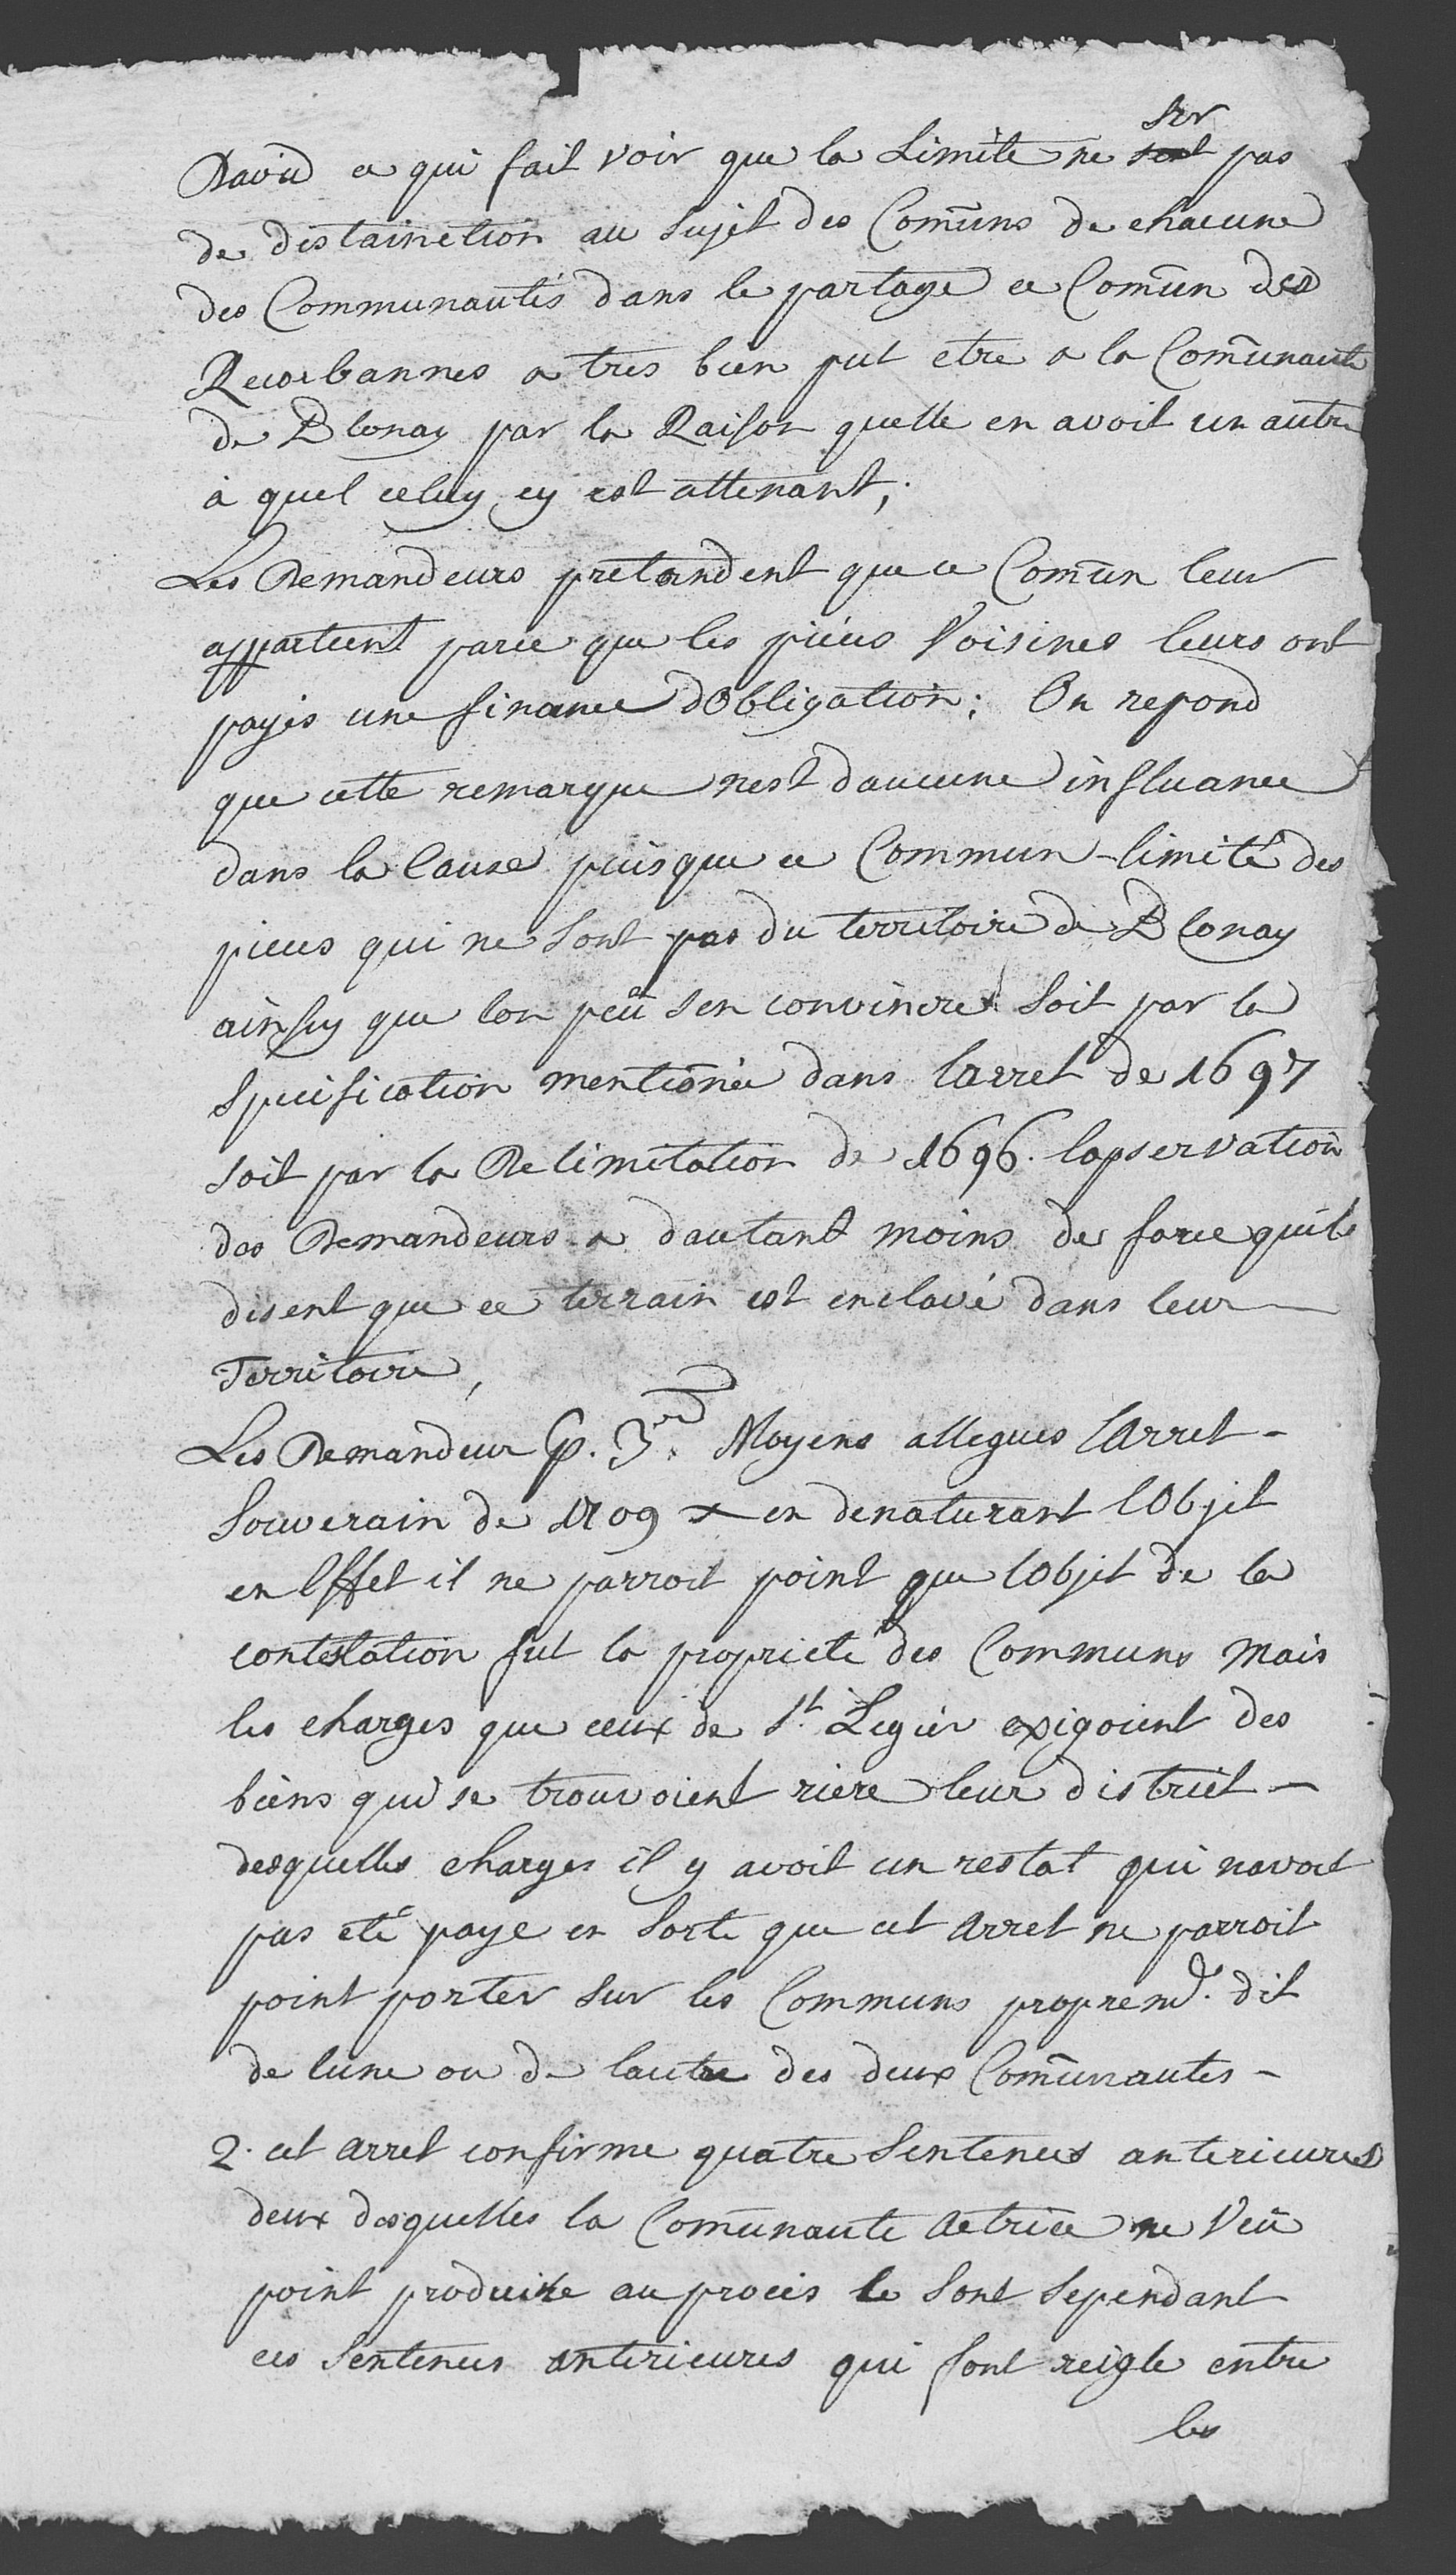 David ce qui fait voir que la Limite ne ser pas
de distainction au Sujet des Com̃uns de chacune
des Communautés dans le partage ce Com̃un des
a tres bien put etre a la Com̃unauté
de Blonay par la Raison quelle en avoit un autre
à quel celuy cy est attenant;
Les Demandeurs pretendent que ce Com̃un leur
appartient parce que les pièces Voisines leurs ont
payés une finance dObligation; On repond
que cette remarque nest daucune influance
dans la Cause puisque ce Commun limité des
pieces qui ne Sont pas du territoire de Blonay
ainsy que lon peut sen convincre soit par la
Specification mentiõnée dans larret de 1697
soit par la Delimitation de 1696. lopservation
des Demandeurs a dautant moins de force quils
disent que ce terrain est enclavé dans leur
Territoire,
Les Demandeur p. 3.me Moyens allegues lArret
Souverain de 1709 en denaturant lObjet
en Effet il ne parroit point que lObjet de la
contestation fut la proprieté des Communs Mais
les charges que ceux de St. Legier exigoient des
biens qui se trouvoient riere leur district
desquelles charges il y avoit un restat qui navoit
pas eté payé en Sorte que cet Arret ne parroit
point porter Sur les Communs proprem.t dit
de lune ou de lautre des deux Com̃unautes
2. cet arret confirme quatre Sentences anterieures
deux desquelles la Com̃unaute Actrice ne Veut
point produire au procès le Sont Sependant
ces Sentences anterieures qui font reigle entre
les